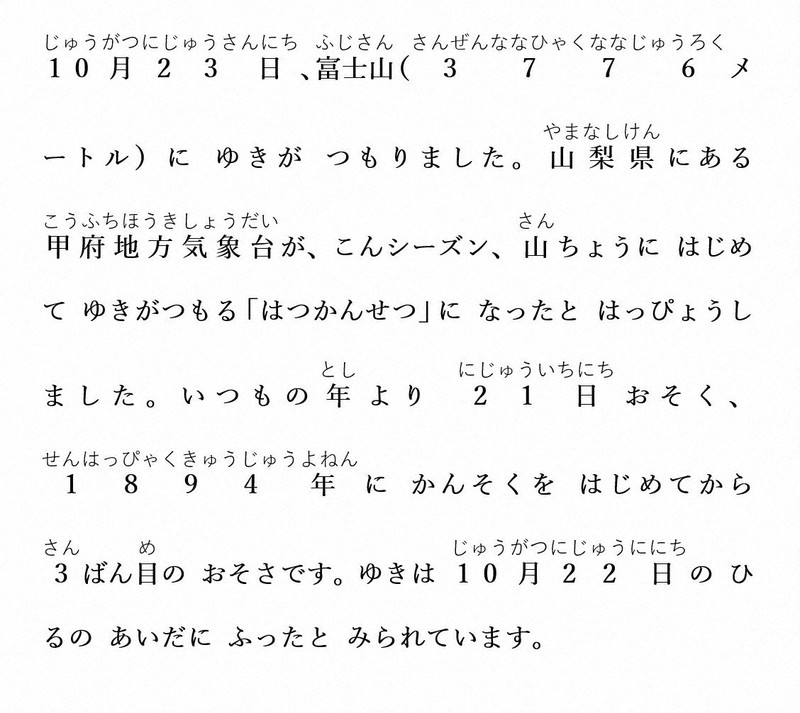 じゅうがつにじゅうさんにち ふじさん さんぜんななひゃくななじゅうろく
10月23日、富士山(3776メ
やまなしけん
ートル)に ゆきが つもりました。山梨県にある
こうふちほうきしょうだい さん
甲府地方気象台が、こんシーズン、山ちょうに はじめ
て ゆきがつもる「はつかんせつ」に なったと はっぴょうし
とし にじゅういちにち
ました。いつもの年より 21日おそく、
せんはっぴゃくきゅうじゅうよねん
1894年に かんそくを はじめてから
さん め じゅうがつにじゅうににち
3ばん目の おそさです。ゆきは 10月22日の ひ
るの あいだに ふったと みられています。